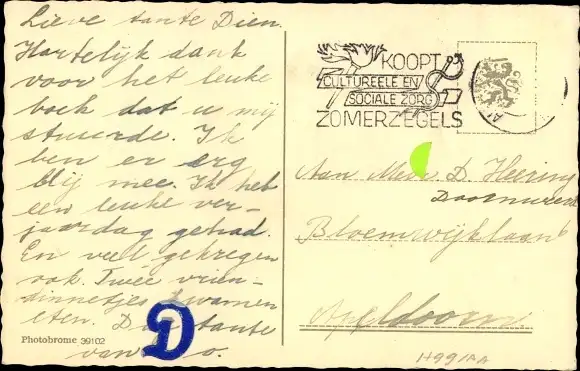 Lieve tante Dien.
Hartelijk dank
voor het leuke
boek dat u mij
stuurde. Ik
ben er erg
blij mee. Ik heb
een leuke ver-
jaardag gehad.
En veel gekregen
ook. Twee vrien-
dinnetjes kwamen
eten. Dag tante
van
D
Photobrome 39102
KOOPT
CULTUREELE EN
SOCIALE ZORG
ZOMERZEGELS
Aan Mevr. D. Heering
Bloemwijklaan
Apeldoorn
H99/AA